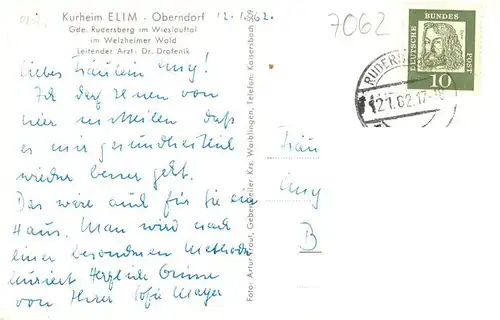 Kurheim ELIM - Oberndorf
Gde. Rudersberg im Wieslauftal
im Welzheimer Wald
Leitender Arzt: Dr. Drofenik
12.1.62.
7062
Liebes Fräulein Emy!
Ich darf Ihnen von
hier mitteilen daß
es mir gesundheitlich
wieder besser geht.
Das wäre auch für Sie ein
Haus. Man wird nach
einer besonderen Methode
kuriert Herzliche Grüsse
von Ihrer Sofie Mayer
Foto: Artur Traut, Gebenweiler, Krs. Waiblingen, Telefon: Kaisersbach
Fräu
Emy
B
DEUTSCHE BUNDES POST
10
RUDERS
12.1.62.17-18